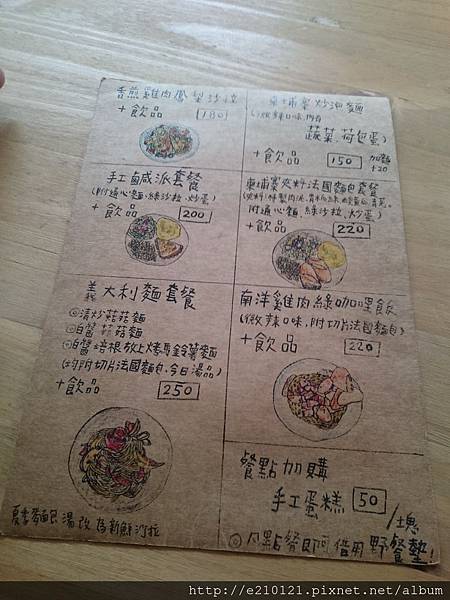 香煎雞肉鳳梨沙拉
+飲品 180
手工鹹派套餐
(附通心麵、綠沙拉、炒蛋)
+飲品 200
義大利麵套餐
◎清炒菇菇麵
◎白醬菇菇麵
◎白醬培根放上烤馬鈴薯麵
(均附切片法國麵包,今日湯品)
+飲品 250
夏季麵包湯改為新鮮沙拉
柬埔寨炒泡麵
(微辣口味,附有
蔬菜、荷包蛋)
+飲品 150 加麵+20
柬埔寨夾料法國麵包套餐
附通心麵、綠沙拉、炒蛋)
+飲品 220
南洋雞肉綠咖哩飯
(微辣口味,附切片法國麵包)
+飲品 220
餐點加購
手工蛋糕 50/塊
◎凡點餐即可借用野餐墊!
http://e210121.pixnet.net/album